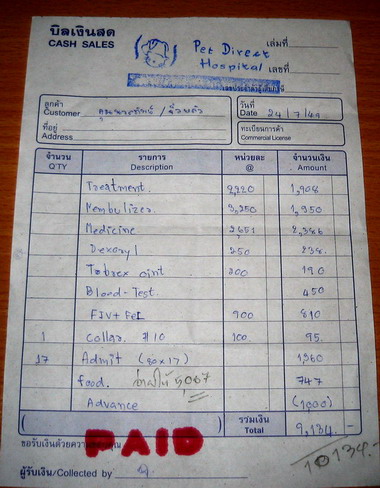 บิลเงินสด
CASH SALES
Pet Direct
Hospital
เล่มที่
เลขที่
ลูกค้า
Customer
ที่อยู่
Address
วันที่
Date 24/7/49
ทะเบียนการค้า
Commercial License
จำนวน รายการ หน่วยละ จำนวนเงิน
Q'TY Description @ Amount
Treatment. 2,220 1,908
Nembulizer 3,250 1,950
Medicine 2651 2,386
Dexoryl 250 238.
Tobrex oint 200 190
Blood-Test. 450
FIV+ FeL 900 810
1 Collar #10 100 95.
17 Admit (80x17) 1360
food. 747
Advance (1,000)
รวมเงิน
Total 9,134.-
10134.-
ขอรับเงินด้วยความขอบคุณ
PAID
ผู้รับเงิน/Collected by